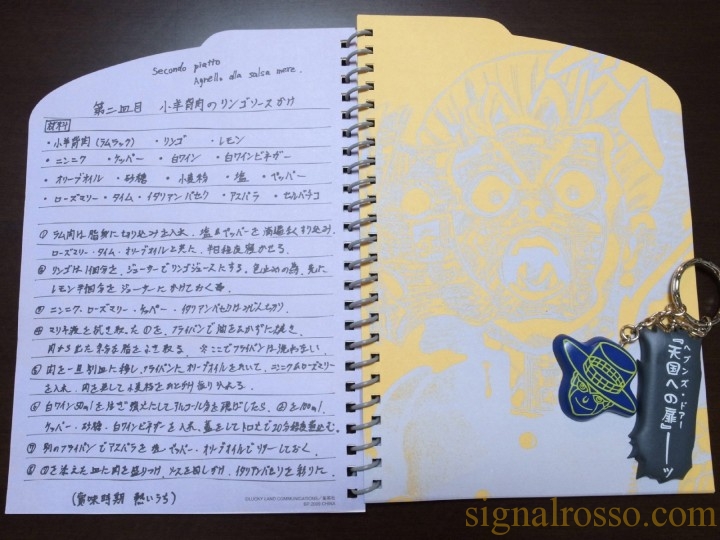 Secondo piatto
Agnello alla salsa mere.
第二皿目 小羊背肉のリンゴソースかけ
材料
・小羊背肉(ラムラック) ・リンゴ ・レモン
・ニンニク ・ケッパー ・白ワイン ・白ワインビネガー
・オリーブオイル ・砂糖 ・小麦粉 ・塩 ・ペッパー
・ローズマリー ・タイム ・イタリアンパセリ ・アスパラ ・セルバチコ
① ラム肉は脂身に切り込みを入れ、塩&ペッパーを満遍なくすり込み、
ローズマリー・タイム・オリーブオイルと共に、半日程度寝かせる。
② リンゴは1個分を、ジューサーでリンゴジュースにする。色止めの為、先に
レモン半個分をジューサーにかけておく事。
③ ニンニク・ローズマリー・ケッパー・イタリアンパセリはみじんぎり。
④ マリネ液を拭き取った①を、フライパンで油をひかずに焼き
肉から出た余分な脂をふき取る。 ※ここでフライパンは洗わない。
⑤ 肉を一旦別皿に移し、フライパンにオリーブオイルをひいて、ニンニク&ローズマリー
を入れ、肉を戻して小麦粉を
⑥ 白ワイン50mlを注ぎ煮立たしてアルコール分を飛ばしたら、②を100ml、
ケッパー・砂糖・白ワインビネガーを入れ、蓋をしてトロ火で20分程度煮込む。
⑦ 別のフライパンでアスパラを塩・ペッパー・オリーブオイルでソテーしておく。
⑧ ⑦を添えた皿に肉を盛りつけ、ソースを回しかけ、イタリアンパセリを彩りに。
(賞味時期 熱いうち)
©LUCKY LAND COMMUNICATIONS/集英社
CHINA
ヘブンズ・ドアー
『天国への扉』――ッ
signalrosso.com